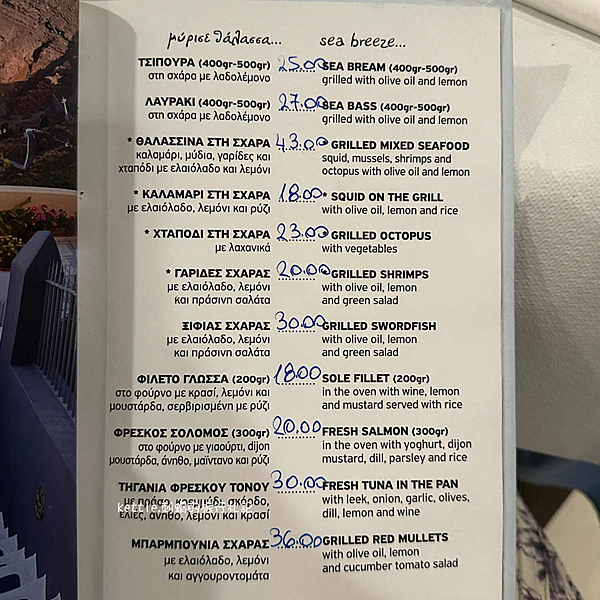 μύρισε θάλασσα... sea breeze...
ΤΣΙΠΟΥΡΑ (400gr-500gr) 25.00 SEA BREAM (400gr-500gr)
στη σχάρα με λαδολέμονο grilled with olive oil and lemon
ΛΑΥΡΑΚΙ (400gr-500gr) 27.00 SEA BASS (400gr-500gr)
στη σχάρα με λαδολέμονο grilled with olive oil and lemon
* ΘΑΛΑΣΣΙΝΑ ΣΤΗ ΣΧΑΡΑ 43.00 * GRILLED MIXED SEAFOOD
καλαμάρι, μύδια, γαρίδες και squid, mussels, shrimps and
χταπόδι με ελαιόλαδο και λεμόνι octopus with olive oil and lemon
* ΚΑΛΑΜΑΡΙ ΣΤΗ ΣΧΑΡΑ 18.00 * SQUID ON THE GRILL
με ελαιόλαδο, λεμόνι και ρύζι with olive oil, lemon and rice
* ΧΤΑΠΟΔΙ ΣΤΗ ΣΧΑΡΑ 23.00 * GRILLED OCTOPUS
με λαχανικά with vegetables
* ΓΑΡΙΔΕΣ ΣΧΑΡΑΣ 20.00 * GRILLED SHRIMPS
με ελαιόλαδο, λεμόνι with olive oil, lemon
και πράσινη σαλάτα and green salad
ΞΙΦΙΑΣ ΣΧΑΡΑΣ 30.00 GRILLED SWORDFISH
με ελαιόλαδο, λεμόνι with olive oil, lemon
και πράσινη σαλάτα and green salad
ΦΙΛΕΤΟ ΓΛΩΣΣΑ (200gr) 18.00 SOLE FILLET (200gr)
στο φούρνο με κρασί, λεμόνι και in the oven with wine, lemon
μουστάρδα, σερβιρισμένη με ρύζι and mustard served with rice
ΦΡΕΣΚΟΣ ΣΟΛΟΜΟΣ (300gr) 20.00 FRESH SALMON (300gr)
στο φούρνο με γιαούρτι, dijon in the oven with yoghurt, dijon
μουστάρδα, άνηθο, μαϊντανο και ρύζι mustard, dill, parsley and rice
ΤΗΓΑΝΙΑ ΦΡΕΣΚΟΥ ΤΟΝΟΥ 30.00 FRESH TUNA IN THE PAN
με πράσο, κρεμμύδι, σκόρδο, with leek, onion, garlic, olives,
ελιές, άνηθο, λεμόνι και κρασί dill, lemon and wine
ΜΠΑΡΜΠΟΥΝΙΑ ΣΧΑΡΑΣ 36.00 GRILLED RED MULLETS
με ελαιόλαδο, λεμόνι with olive oil, lemon
και αγγουροντομάτα and cucumber tomato salad